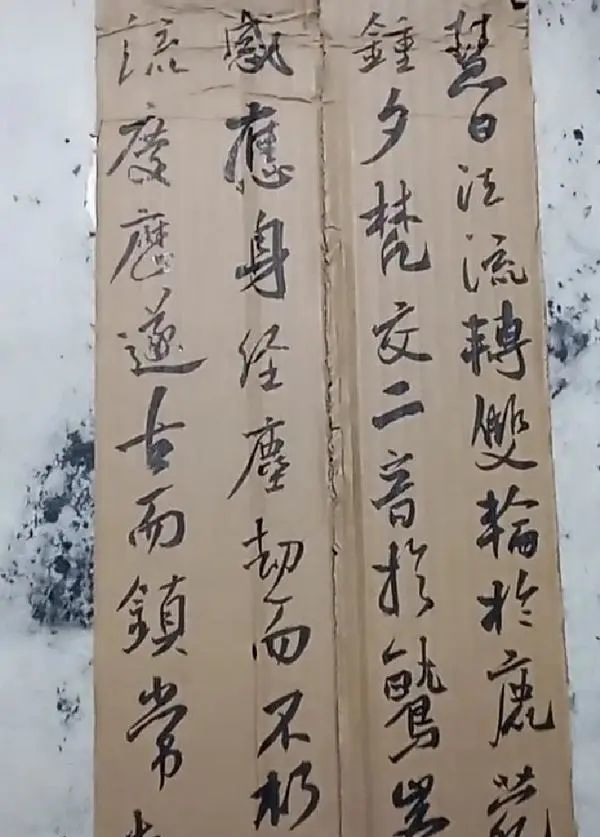 慧日法流轉雙輪於鹿菀
鍾夕梵交二音於鷲峯
感應身経塵劫而不朽
流慶歷遂古而鎮常